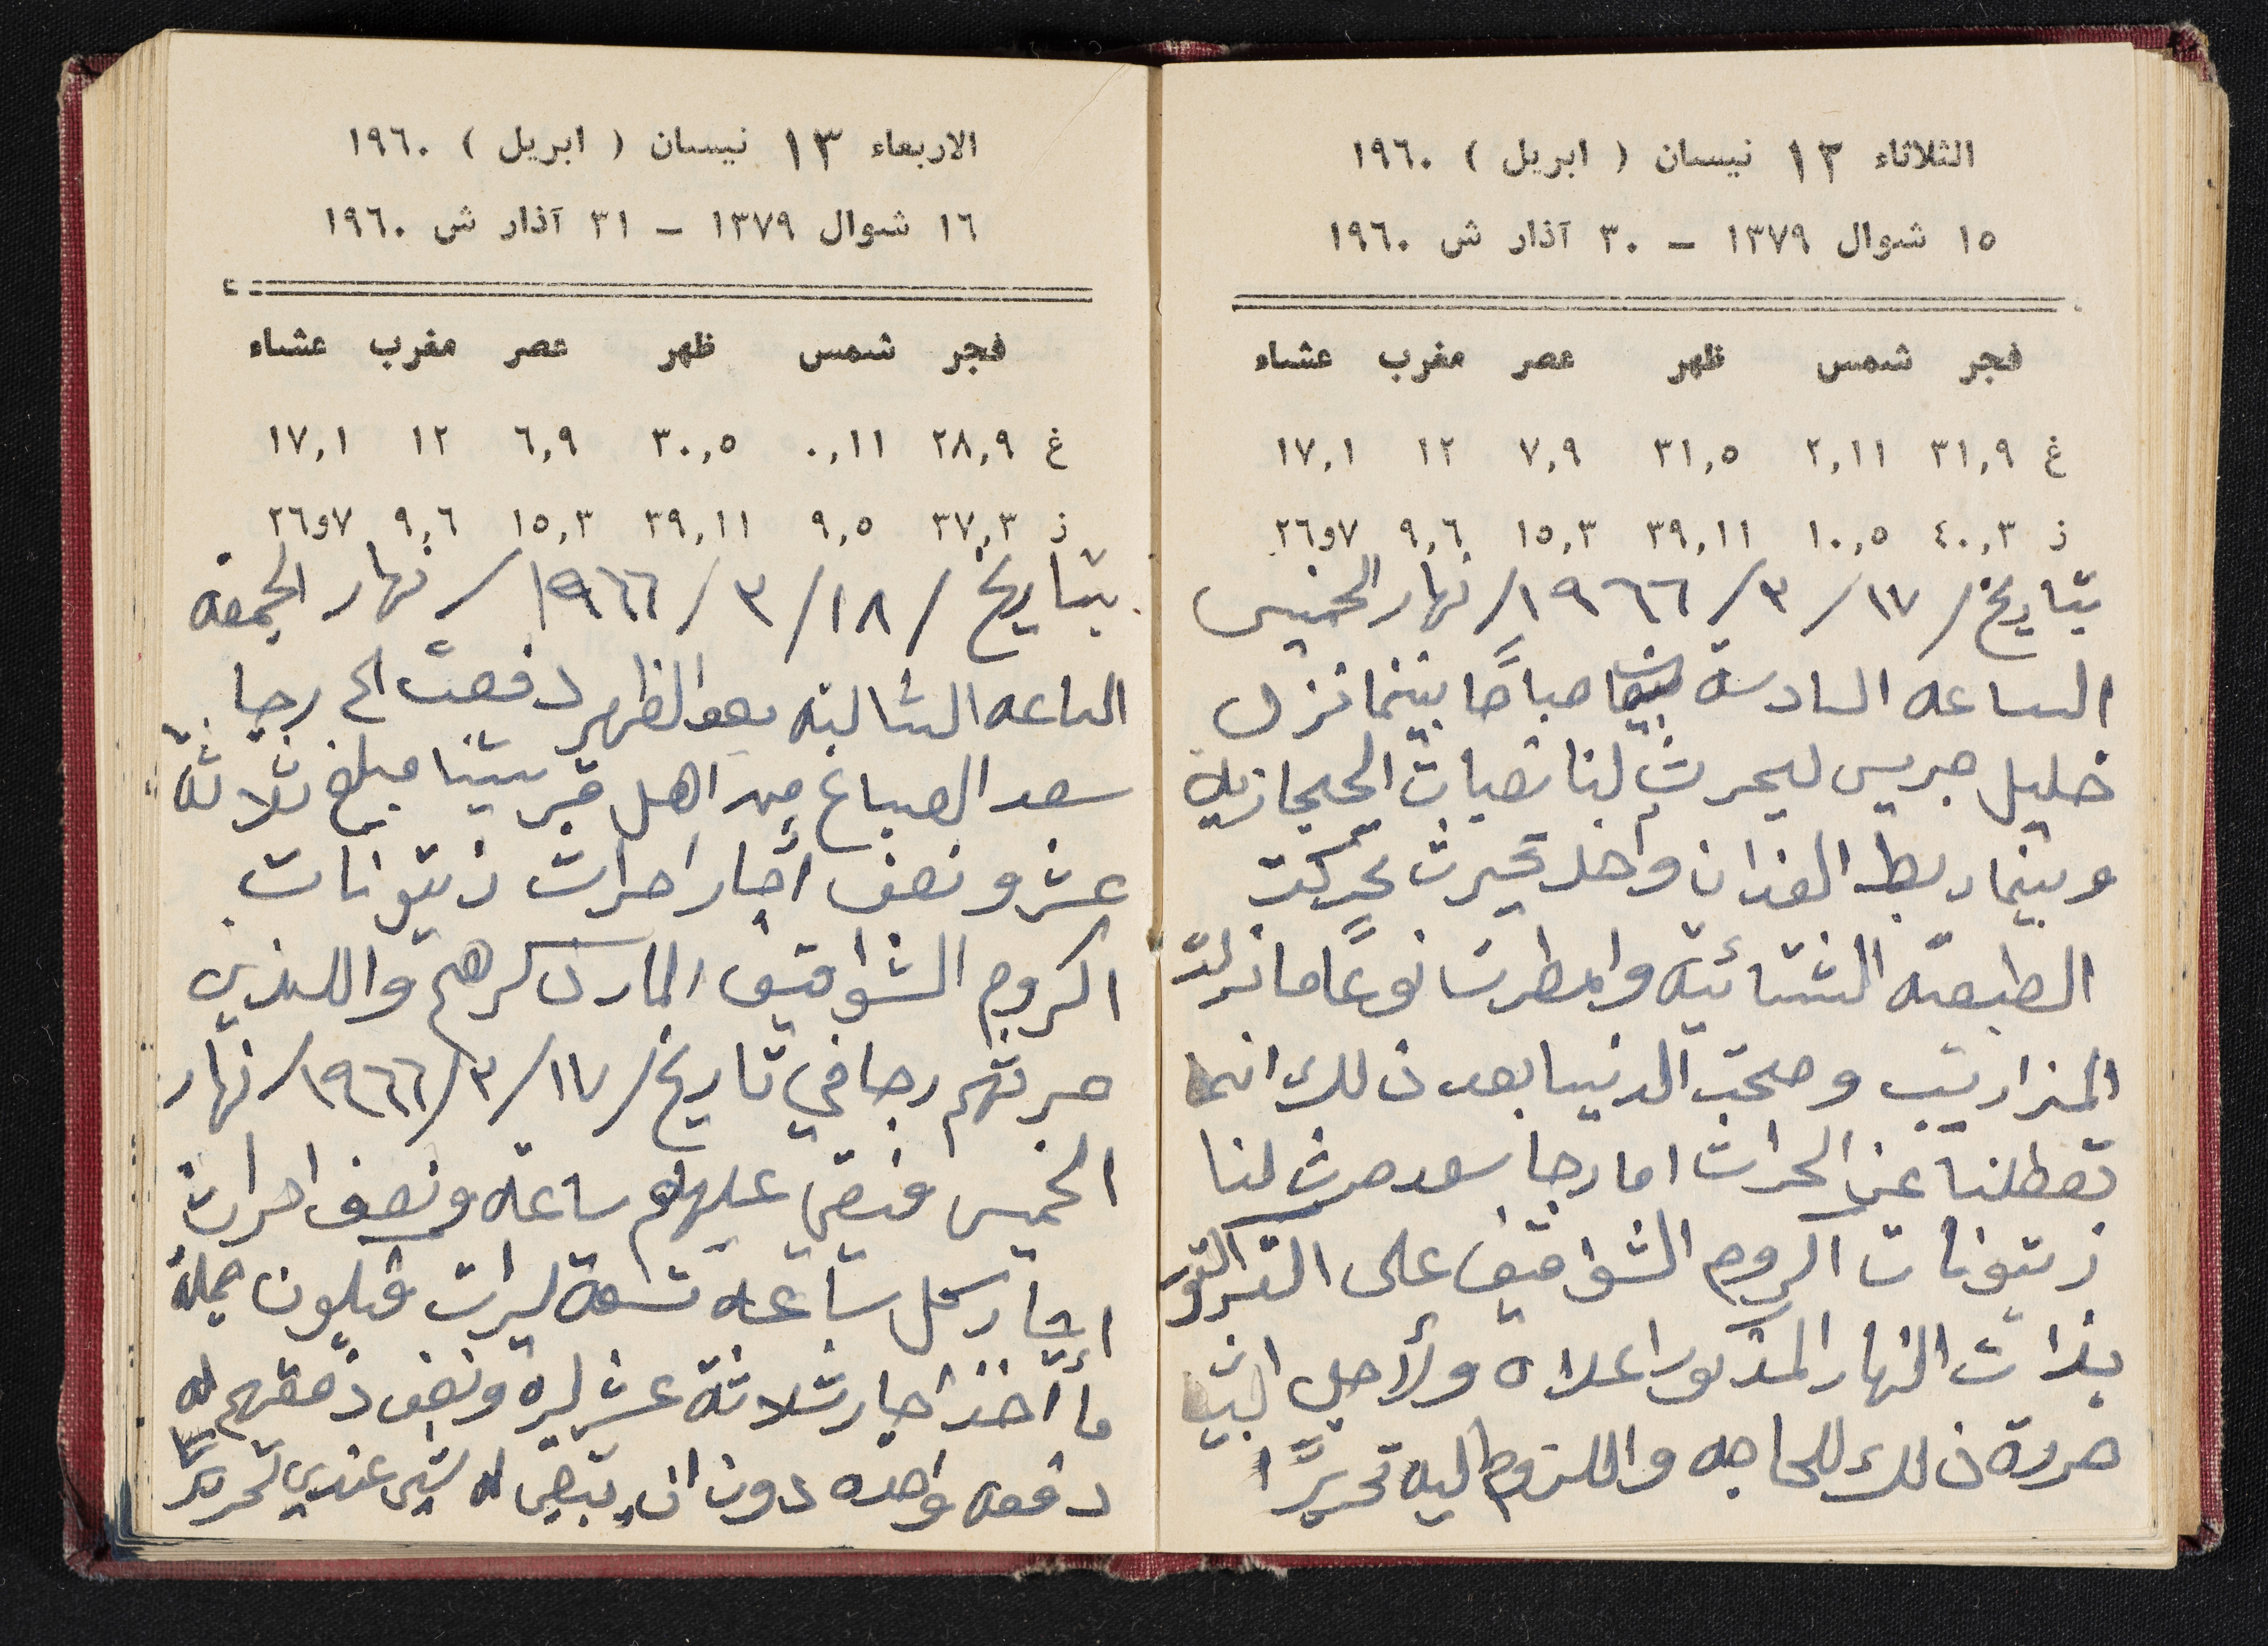 الثلاثاء ١٢ نيسان ( ابريل ) ١٩٦٠
١٥ شوال ١٣٧٩ – ٣٠ آذار ش ١٩٦٠
فجر شمس ظهر عصر مغرب عشاء
غ ٣١,٩ ٢,١١ ٣١,٥ ٧,٩ ١٢ ١٧,١
ز ٤٠,٣ ١٠,٥ ٣٩,١١ ١٥,٣ ٩,٦ ٧و٢٦
بتاريخ / ١٧ / ٣ / ١٩٦٦ / نهار الخميس
الساعه السادسة صباحًا بينما نزل
خليل جريس ليحرث لنا نصبات الحيجازية
وبينما ربط الفدان واخد تحيرث تحركت
الطبعة الشتائية وامطرت نوعًا ما نزلت
المزاريب وصحت الدنيا بعد ذلك انما
تعطلنا عن الحراث اما رجا سعد حرث لنا
زيتونات الكروم الشواقيف على التراكتور
بذات النهار المذكور اعلاه ولأجل البيا
حررة ذلك للحاجه واللزوم اليه تحريرًا
الاربعاء ١٣ نيسان ( ابريل ) ١٩٦٠
١٦ شوال ١٣٧٩ – ٣١ آذار ش ١٩٦٠
فجر شمس ظهر عصر مغرب عشاء
غ ٢٨,٩ ٠,١١ ٣٠,٥ ٦,٩ ١٢ ١٧,١
ز ٣٧,٣ ٩,٥ ٣٩,١١ ١٥,٣ ٩,٦ ٧و٢٦
بتاريخ / ١٨ / ٣ / ١٩٦٦ / نهار الجمعة
الساعه الثالثه بعد الظهر دفعت الى رجا
سعد الصباغ من اهل قريتنا مبلغ ثلاثة
عشر ونصف أجار احراث زيتونات
الكروم الشواقيف المارن كرهم واللذي
حرثهم رجا في تاريخ / ١٧ / ٣ / ١٩٦٦ / نهار
الخميس فبقي عليهم ساعة ونصف احراث
ايجار كل ساعه تسعة ليرات فيكون جملة
مأاخذ اجار ثلاثة عشر ليره ونصف دفعهم له
دفعه واحده دون ان يبقى له شي عندي تحريرًا